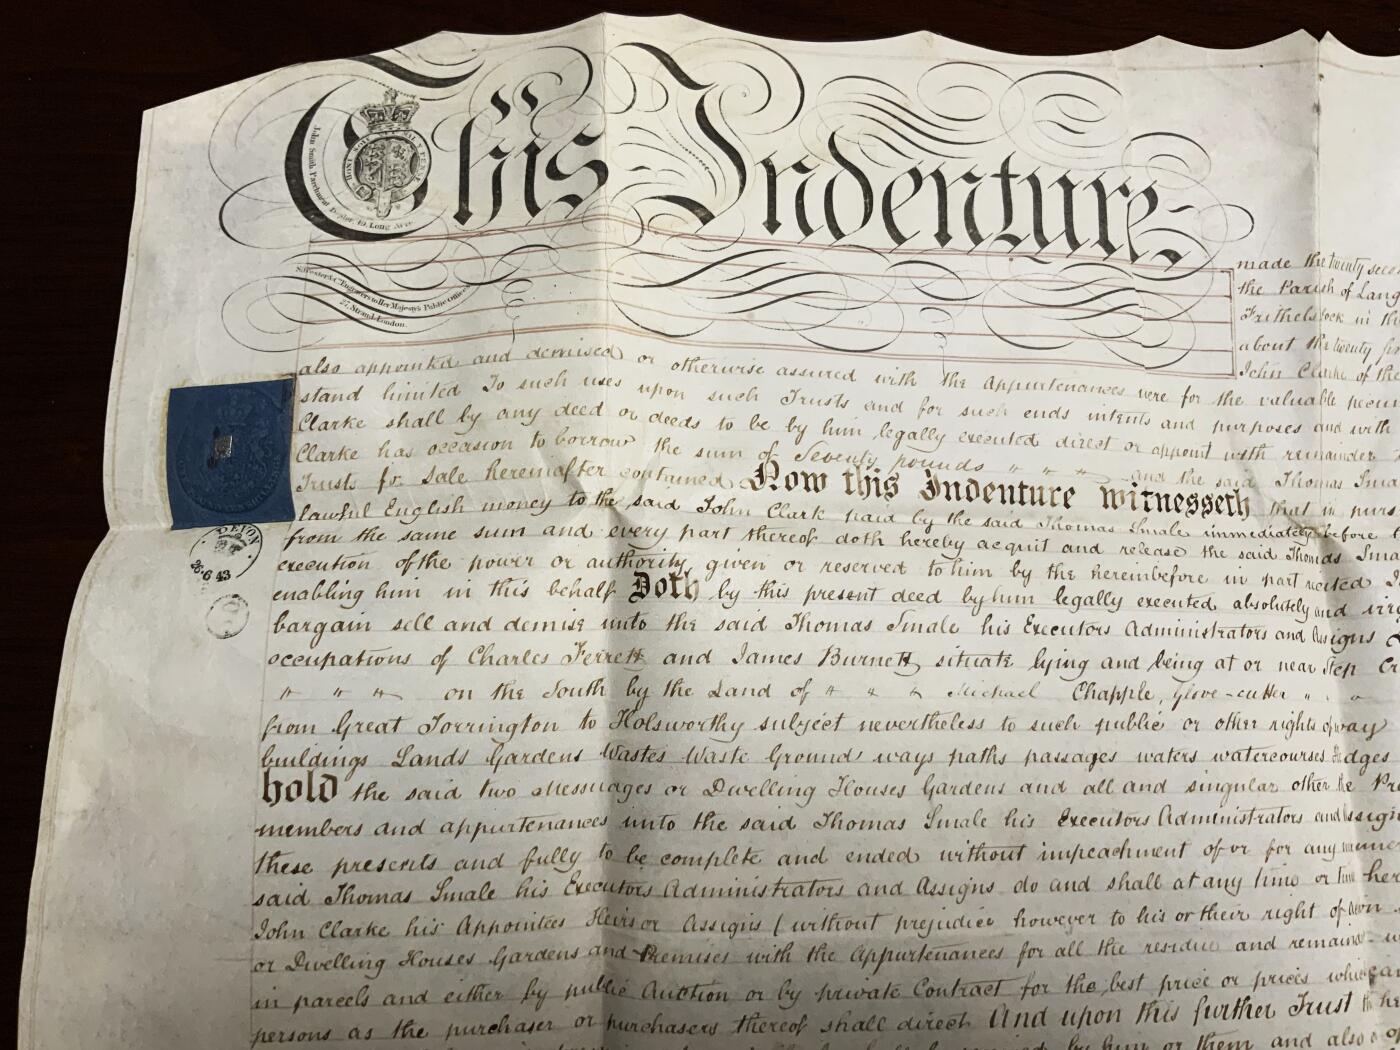 This Indenture
HONI SOIT QUI MAL Y PENSE
John Smith, Parchment Dealer, 49, Long Acre.
Silvester & Co. Engravers to Her Majesty's Public Offices
27, Strand, London.
made the twenty
the Parish of Lang
Frithelstock in th
about the twenty
John Clarke of the
also appointed and demised or otherwise assured with the Appurtenances were for the valuable pecun
stand limited To such uses upon such Trusts and for such ends intents and purposes and with
Clarke shall by any deed or deeds to be by him legally executed direct or appoint with remainder
Clarke has occasion to borrow the sum of Seventy pounds " " " and the said Thomas Sma
Trusts for Sale hereinafter contained Now this Indenture witnesseth that in purs
lawful English money to the said John Clark paid by the said Thomas Smale immediately before
from the same sum and every part thereof doth hereby acquit and release the said Thomas Sma
execution of the power or authority given or reserved to him by the hereinbefore in part recited
enabling him in this behalf Doth by this present deed by him legally executed absolutely and
bargain sell and demise unto the said Thomas Smale his Executors Administrators and Assigns
occupations of Charles Ferrett and James Burnett situate lying and being at or near Step
" " " on the South by the Land of " " " Michael Chapple, Glove-cutter " " "
from Great Torrington to Holsworthy subject nevertheless to such public or other rights of way
buildings Lands Gardens Wastes Waste Ground ways paths passages waters watercourses Hedges
hold the said two Messuages or Dwelling Houses Gardens and all and singular other the Pre
members and appurtenances unto the said Thomas Smale his Executors Administrators and Assign
these presents and fully to be complete and ended without impeachment of or for any manner
said Thomas Smale his Executors Administrators and Assigns do and shall at any time or time her
John Clarke his Appointees Heirs or Assigns (without prejudice however to his or their right of
or Dwelling Houses Gardens and Premises with the Appurtenances for all the residue and remain
in parcels and either by public Auction or by private Contract for the best price or prices which can
persons as the purchaser or purchasers thereof shall direct And upon this further Trust
by him or them and also
DEVON
26·6·43